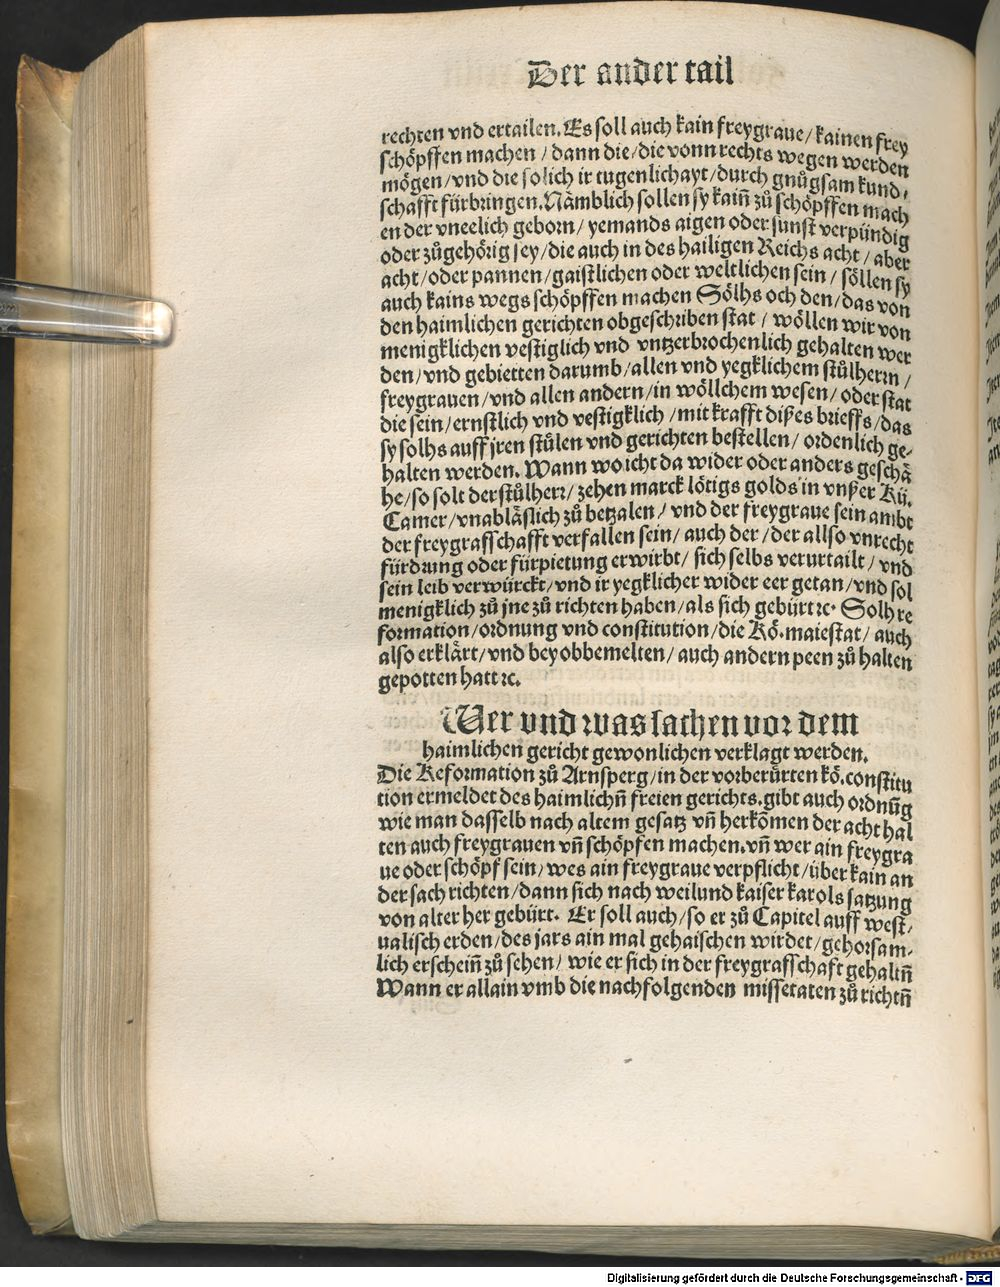 Der ander tail
rechten vnd ertailen. Es soll auch kain freygraue / kainen frey
schöpffen machen / dann die / die vonn rechts wegen werden
mögen / vnd die solich ir tugenlichayt / durch gnůgsam kund,
schafft fürbringen. Nämblich sollen sy kaiñ zů schöpffen mach
en der vneelich geborn / yemands aigen oder sunst verpündig
oder zůgehörig sey / die auch in des hailigen Reichs acht / aber
acht / oder pannen / gaistlichen oder weltlichen sein / söllen sy
auch kains wegs schöpffen machen Sölhs och den / das von
den haimlichen gerichten obgeschriben stat / wöllen wir von
menigklichen vestiglich vnd vntzerbrochenlich gehalten wer
den / vnd gebietten darumb / allen vnd yegklichem stůlherrn /
freygrauen / vnd allen andern / in wöllchem wesen / oder stat
die sein / ernstlich vnd vestigklich / mit krafft dißes brieffs / das
sy solhs auff jren stůlen vnd gerichten bestellen / ordenlich ge-
halten werden. Wann wo icht da wider oder anders geschä
he / so solt der stůlherr / zehen marck lötigs golds in vnßer Kü.
Camer / vnabläslich zů betzalen / vnd der freygraue sein ambt
der freygrafschafft verfallen sein / auch der / der allso vnrecht
fürdrung oder fürpietung erwirbt / sich selbs verurtailt / vnd
sein leib verwürckt / vnd ir yegklicher wider eer getan / vnd sol
menigklich zů jne zů richten haben / als sich gebürt ꝛc. Solh re
formation / ordnung vnd constitution / die Kö. maiestat / auch
also erklärt / vnd bey obbemelten / auch andern peen zů halten
gepotten hatt ꝛc.
Wer vnd was sachen vor dem
haimlichen gericht gewonlichen verklagt werden.
Die Reformation zů Arnsperg / in der vorberürten kö. constitu
tion ermeldet des haimlichñ freien gerichts. gibt auch ordnũg
wie man dasselb nach altem gesatz vñ herkõmen der acht hal
ten auch freygrauen vñ schöpfen machen. vñ wer ain freygra
ue oder schöpf sein / wes ain freygraue verpflicht / über kain an
der sach richten / dann sich nach weilund kaiser karols satzung
von alter her gebürt. Er soll auch / so er zů Capitel auff west,
ualisch erden / des jars ain mal gehaischen wirdet / gehorsam-
lich erscheiñ zů sehen / wie er sich in der freygrafschaft gehaltñ
Wann er allain vmb die nachfolgenden missetaten zů richtñ
Digitalisierung gefördert durch die Deutsche Forschungsgemeinschaft - DFG